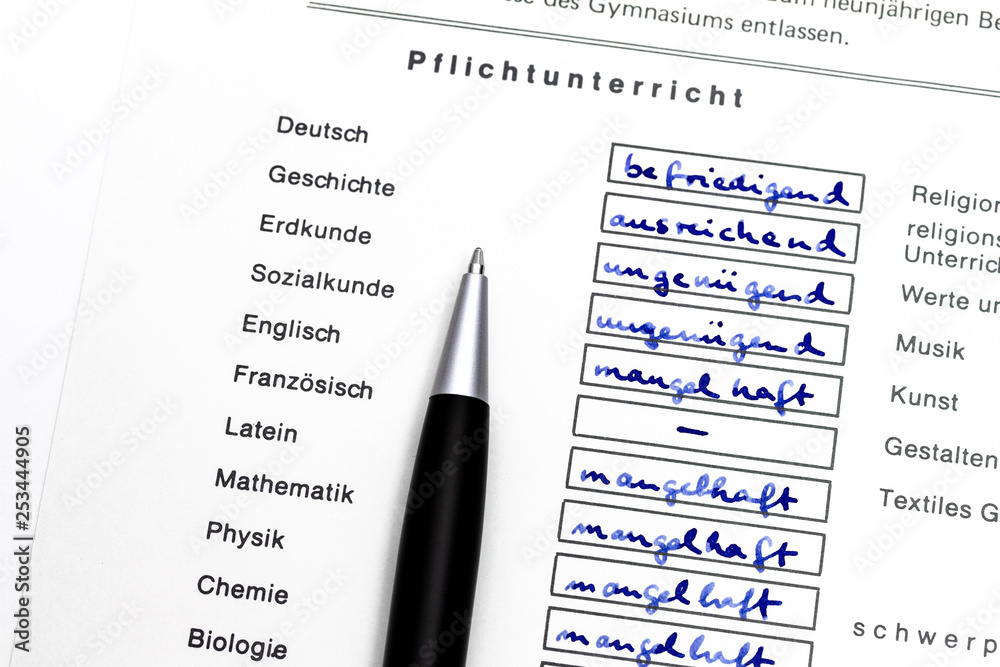 zum neunjährigen Be
des Gymnasiums entlassen.
Pflichtunterricht
Deutsch
befriedigend
Religion
Geschichte
ausreichend
religions
Unterrich
Erdkunde
ungenügend
Werte un
Sozialkunde
ungenügend
Musik
Englisch
mangelhaft
Kunst
Französisch
–
Gestalten
Latein
mangelhaft
Textiles G
Mathematik
mangelhaft
Physik
mangelhaft
schwerp
Chemie
mangelhaft
Biologie
Adobe Stock | #253444905